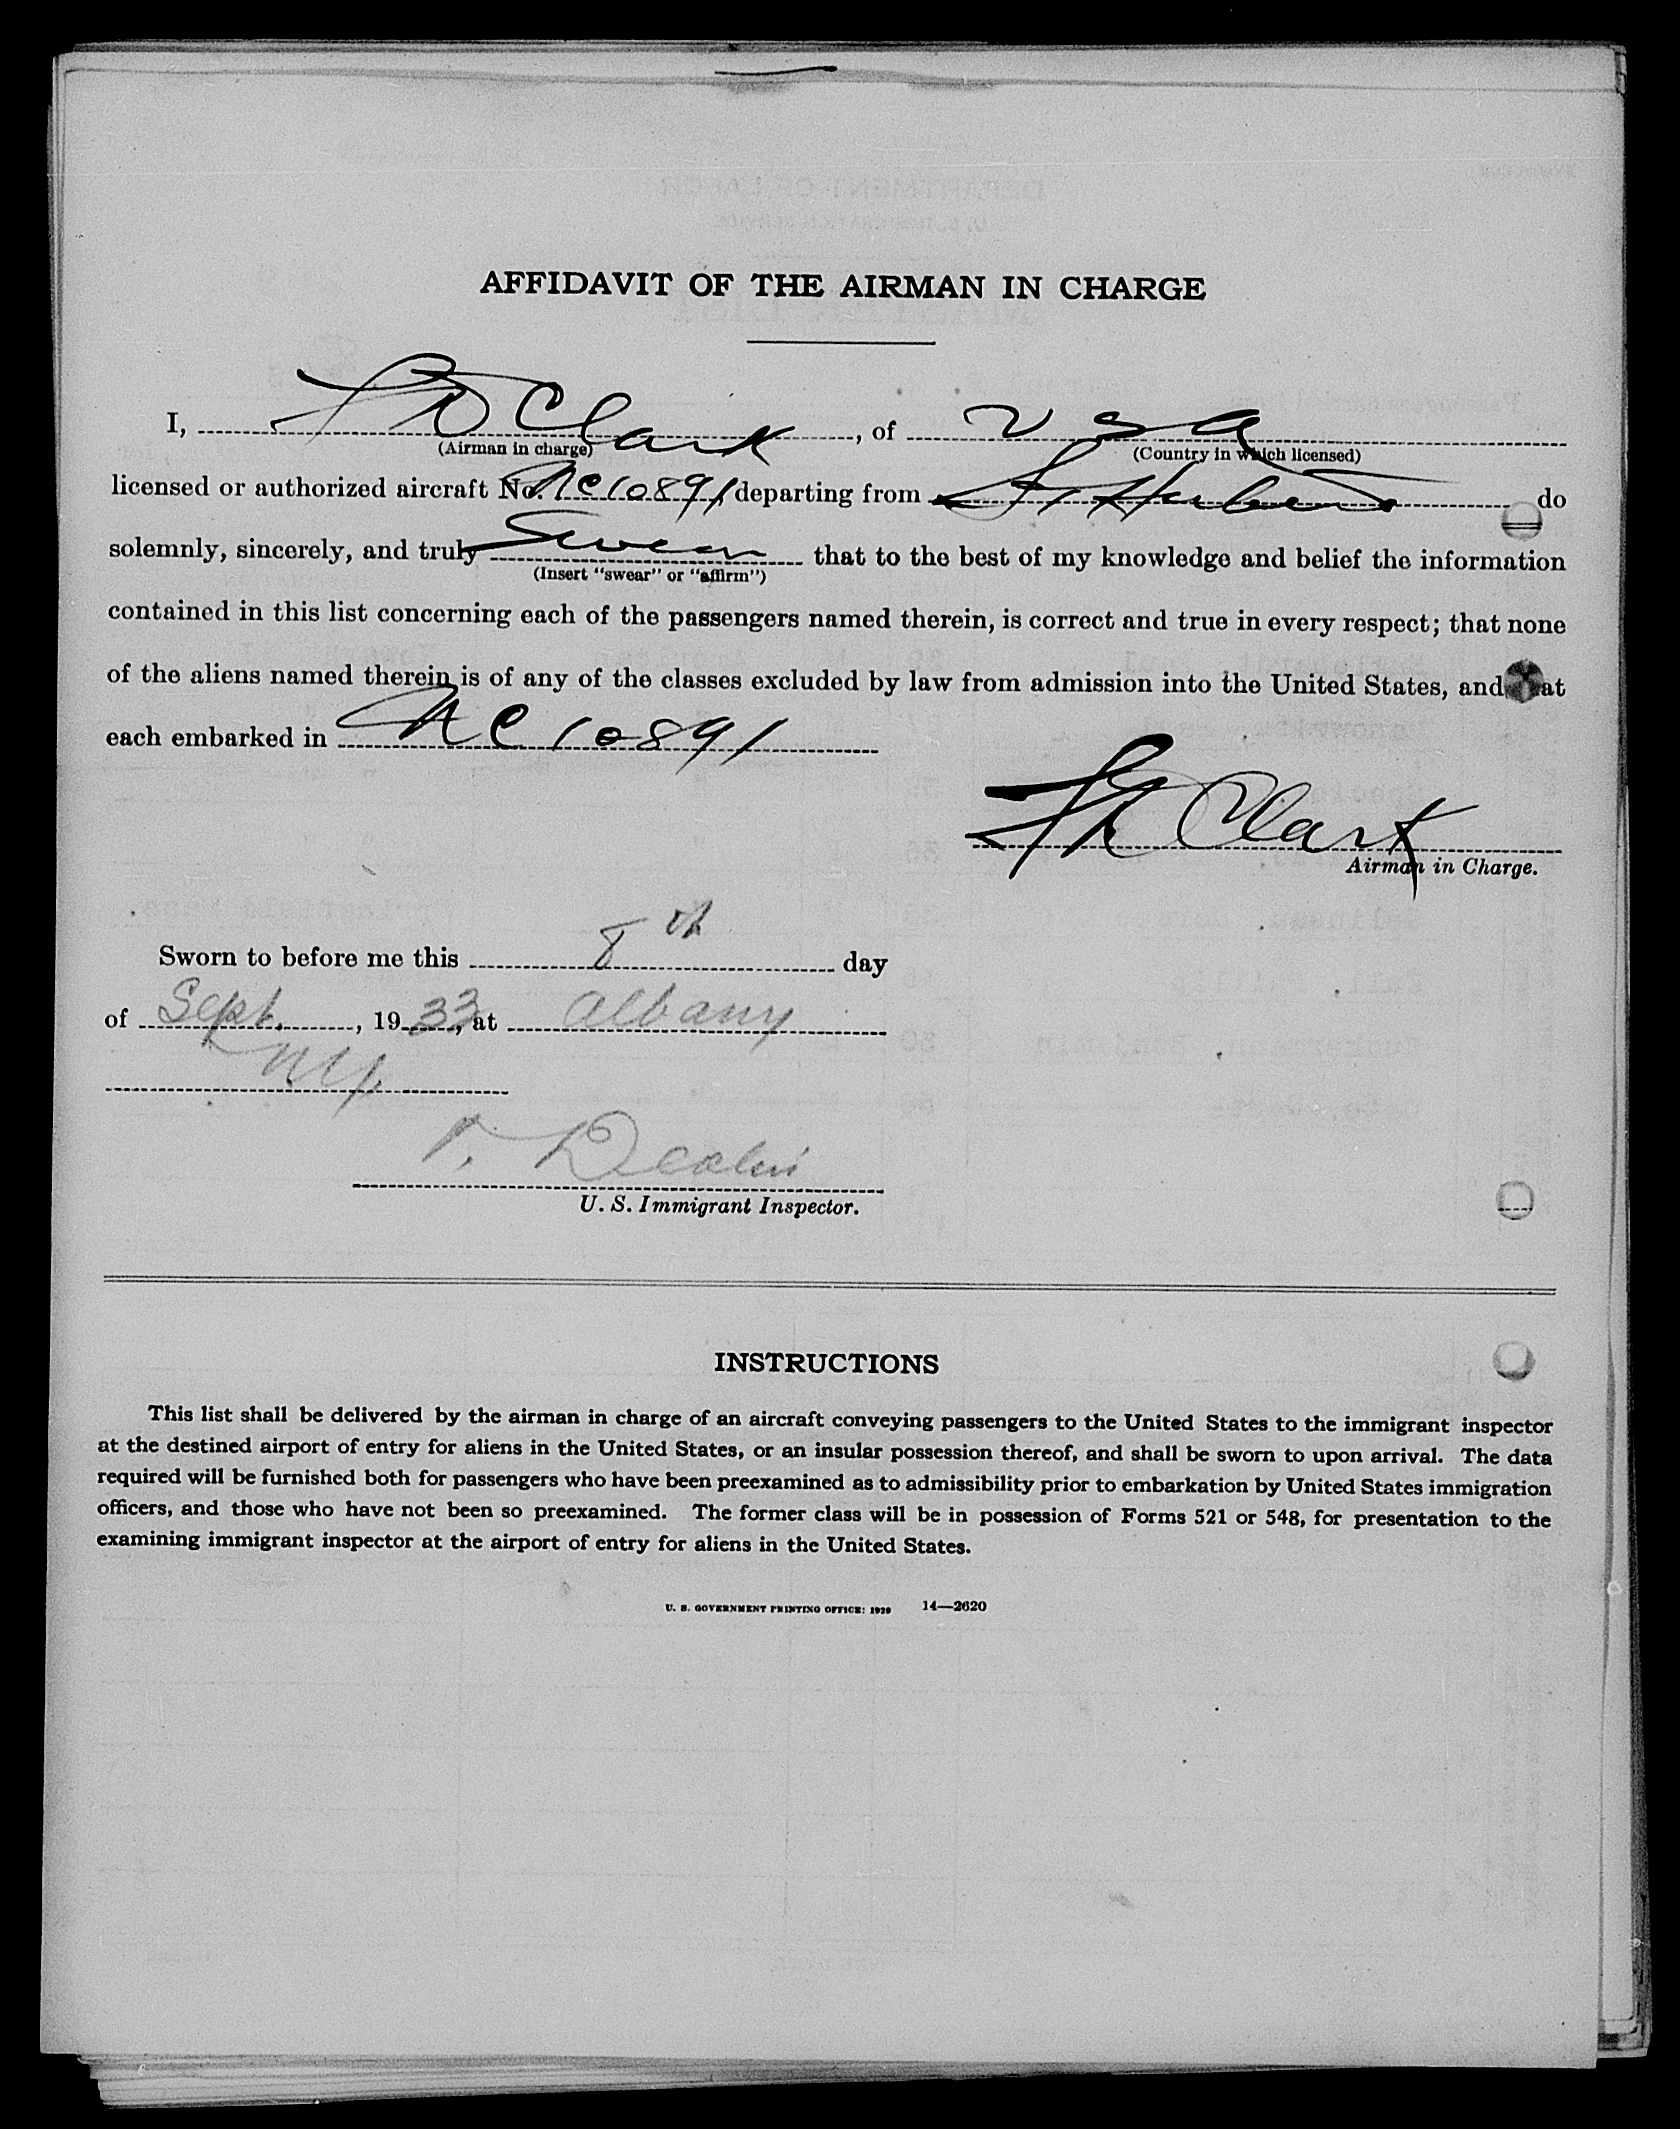 AFFIDAVIT OF THE AIRMAN IN CHARGE
I, Clark, of U S A
(Airman in charge) (Country in which licensed)
licensed or authorized aircraft No. NC10891 departing from St Hubert do
solemnly, sincerely, and truly Swear that to the best of my knowledge and belief the information
(Insert "swear" or "affirm")
contained in this list concerning each of the passengers named therein, is correct and true in every respect; that none
of the aliens named therein is of any of the classes excluded by law from admission into the United States, and that
each embarked in NC 10891
Clark
Airman in Charge.
Sworn to before me this 8th day
of Sept., 1933, at Albany
NY.
U. S. Immigrant Inspector.
INSTRUCTIONS
This list shall be delivered by the airman in charge of an aircraft conveying passengers to the United States to the immigrant inspector
at the destined airport of entry for aliens in the United States, or an insular possession thereof, and shall be sworn to upon arrival. The data
required will be furnished both for passengers who have been preexamined as to admissibility prior to embarkation by United States immigration
officers, and those who have not been so preexamined. The former class will be in possession of Forms 521 or 548, for presentation to the
examining immigrant inspector at the airport of entry for aliens in the United States.
U. S. GOVERNMENT PRINTING OFFICE: 1929 14—2620